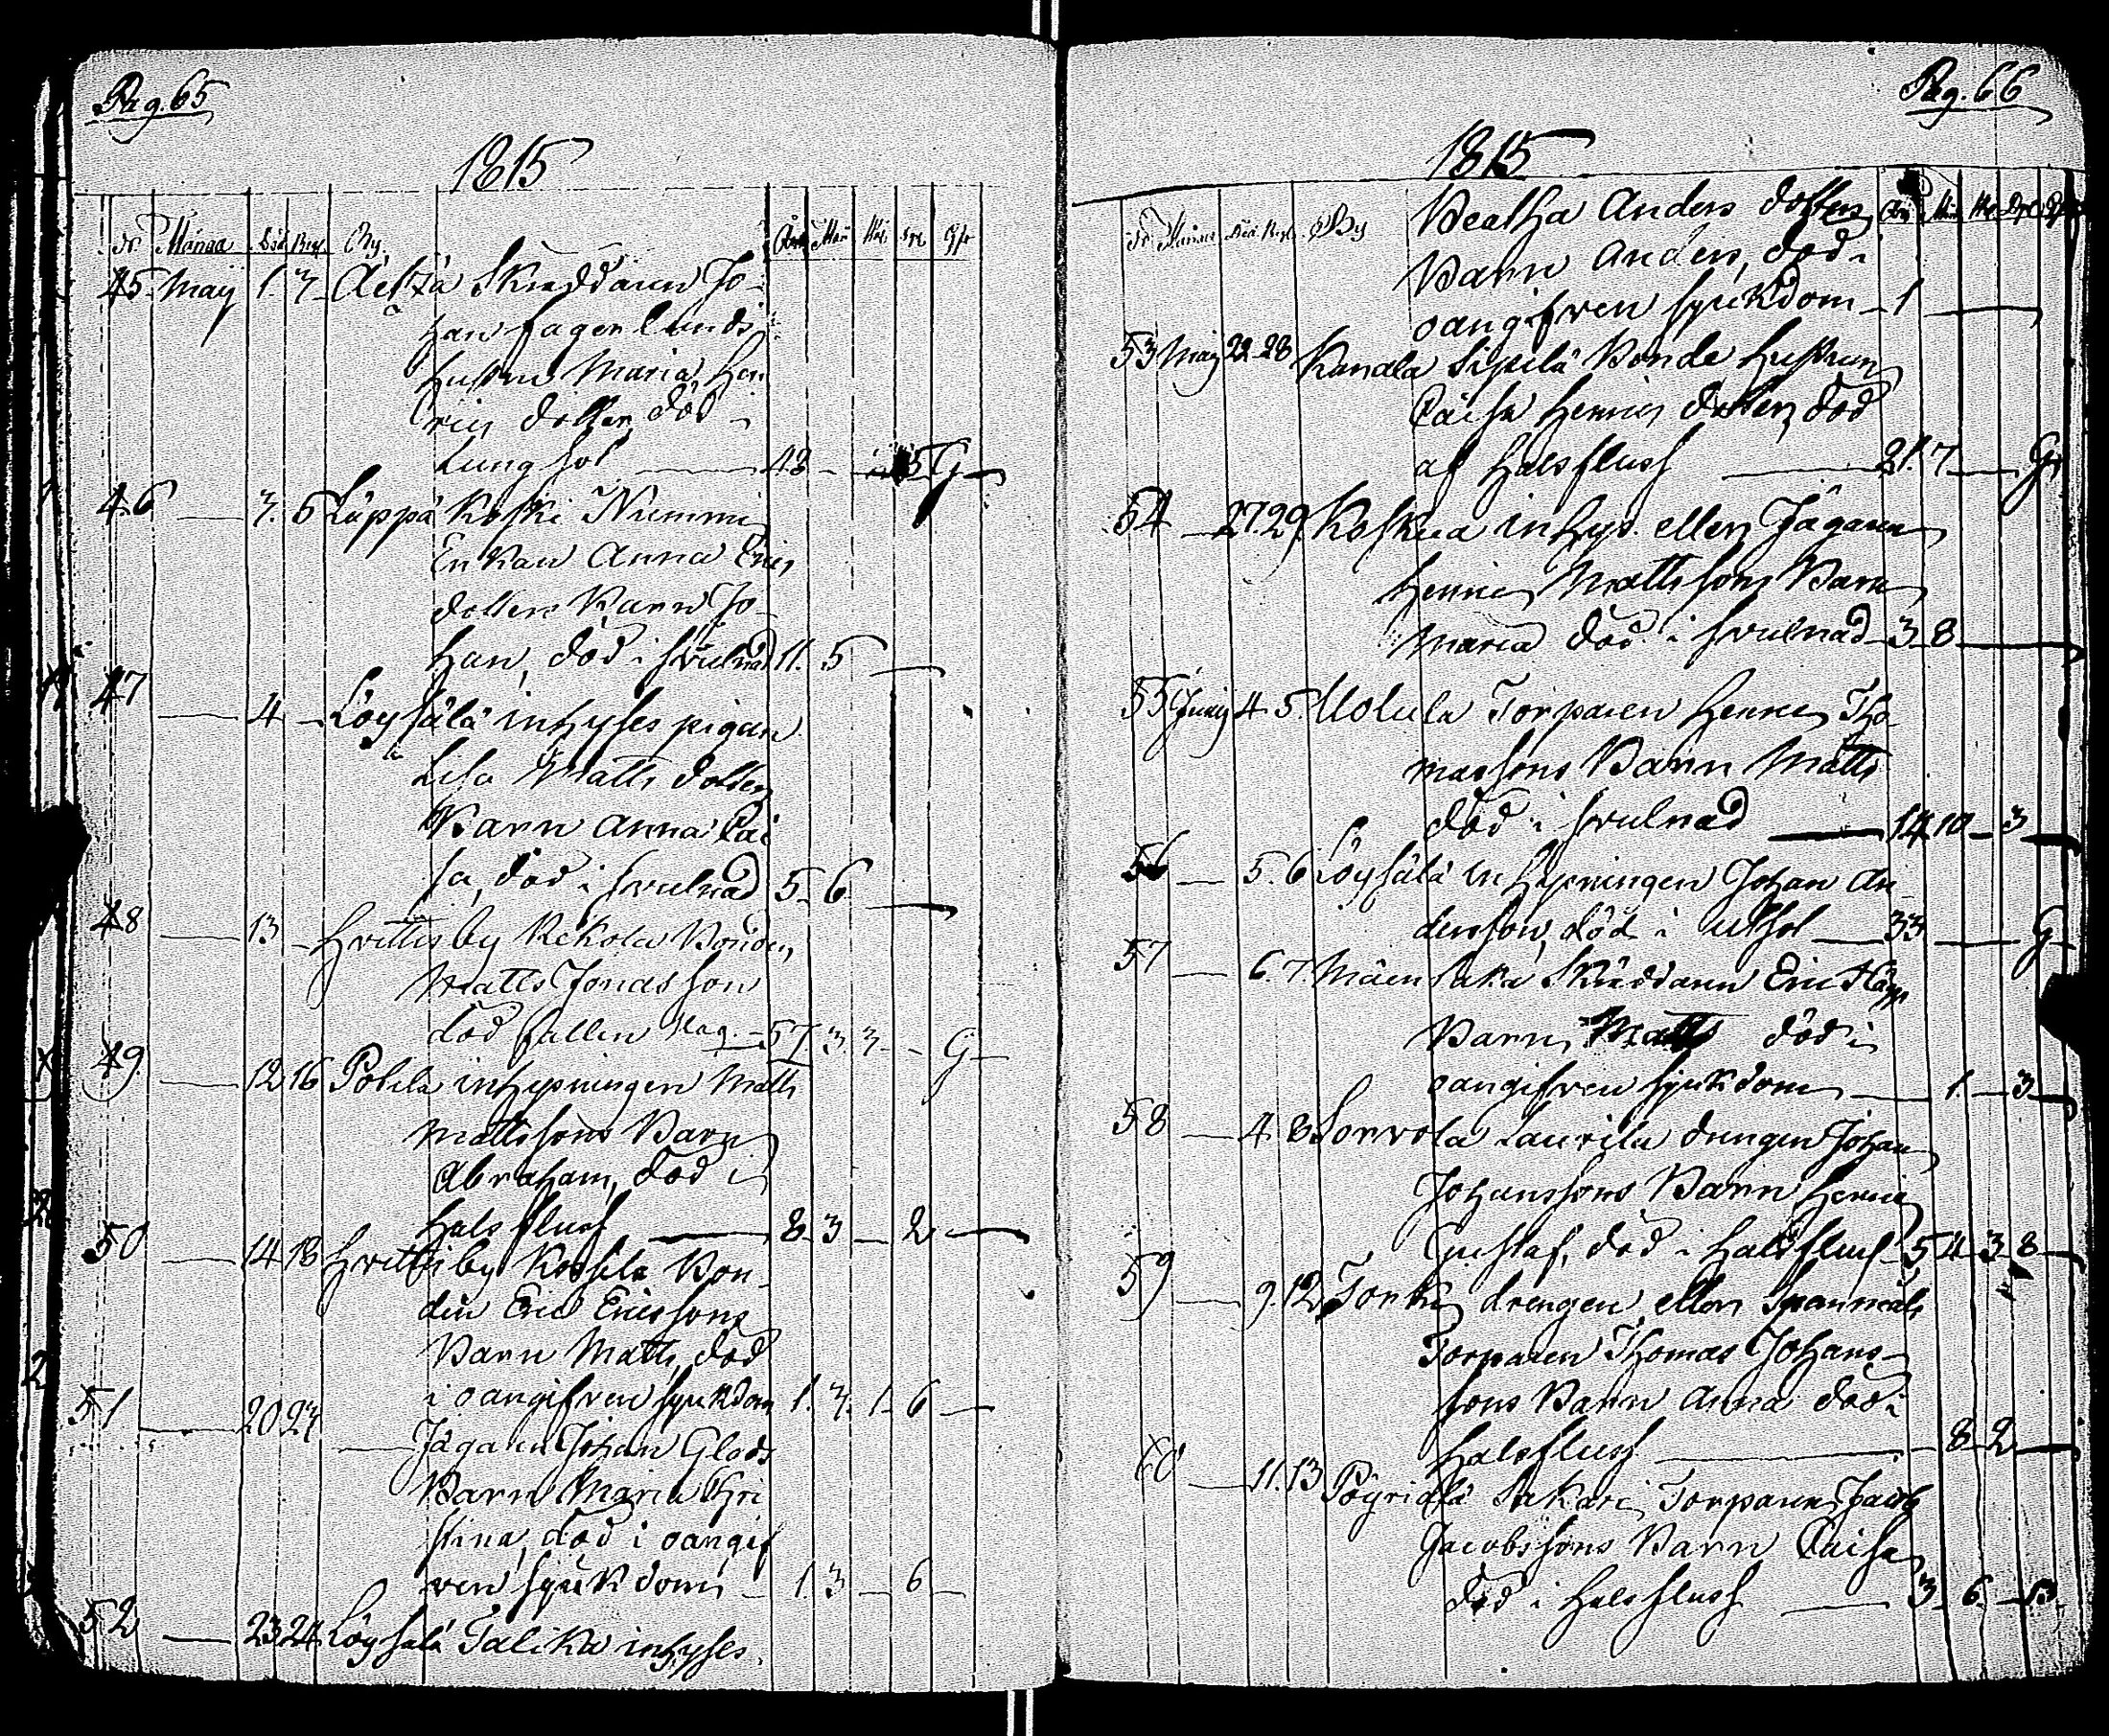 Pag. 65
1815
No Månad Död Begr. By Åhr Mån Vek. Dyg. Gift
45. Maij 1. 7. Aetsä Skräddaren Jo-
han Fagerlunds
Hustru Maria Hen
rics dotter, död i
Lungsot 48 - - 5 G
46 3. 5 Läppä Koski Niemmi
Enkan Anna Erics
dotters Barn Jo-
han, död i svulnad 11. 5
47 4 - Löysälä inhyses pigan
Lisa Matts dotters
Barn Anna Cai
sa, död i svulnad 5. 6
48 13 - Hvittisby Rekola Bonden
Matts Jonas son
död fallen slag. - 57 3 3 - G
49 12 16 Pohla inhysningen Matts
Mattssons Barn
Abraham, död i
Halsfluss 8 3 - 2
50 14 18 Hvittisby Kossila Bon-
den Eric Ericssons
Barn Matts, död
i oangifven sjukdom 1. 7. 1. 6
51 20 23 Jägaren Johan Glads
Barn Maria Chri
stina, död i oangif
ven sjukdom 1. 3 - 6
52 23 24 Löysälä Talikka inhyses
Pag. 66
1815
No Månad Död Begr. By Åhr Mån Vek. Dyg. Gift
Beatha Anders dotters
Barn Anders, död i
oangifven sjukdom 1
53 Maij 22 28 Kandla Sipilä Bonde Hustrun
Caisa Henrics dotter, död
af Halsfluss 21. 7. G
54 27. 29. Koskua inhys. eller Jägaren
Henric Mattssons Barn
Maria död i svulnad 3 8
55 Junij 4 5. Uotula Torparen Henric Tho
massons Barn Matts
död i svulnad 14 10 - 3
56 5. 6 Löysälä inhysningen Johan An
dersson, död i utsot 33 G
57 6. 7. Mäensaka Skräddaren Eric Häpps
Barn Matts död i
oangifven sjukdom 1. - 3
58 4 8 Sorvola Laurila drengen Johan
Johanssons Barn Henric
Gustaf, död i Halsfluss 5 4 3 8
59 9. 12 Torki drengen eller Spannmåls
Torparen Thomas Johans-
sons Barn Anna död i
Halsfluss 8 2
60 11. 13 Pöyriälä Sakari Torparen Jacob
Jacobssons Barn Caisa
död i Halsfluss 3 6. - 13